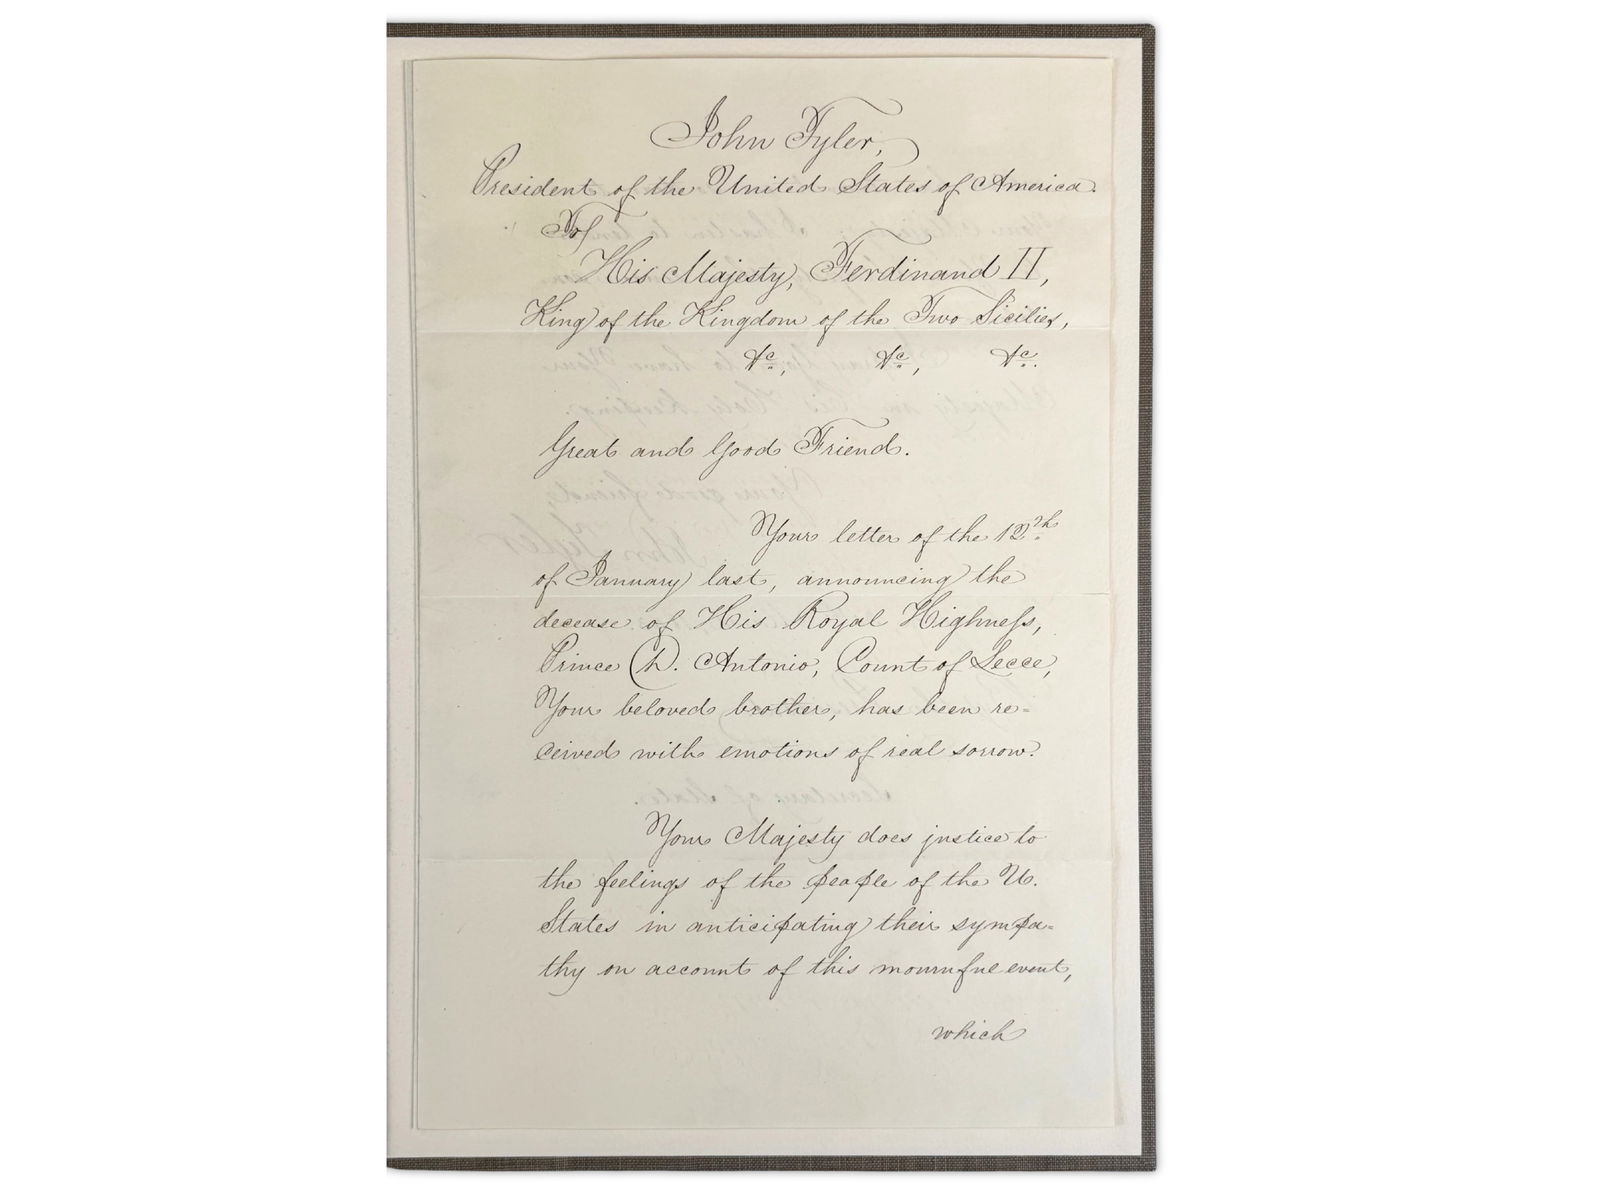 John Tyler,
President of the United States of America.
To
His Majesty, Ferdinand II,
King of the Kingdom of the Two Sicilies,
&c, &c, &c.
Great and Good Friend.
Your letter of the 12th
of January last, announcing the
decease of His Royal Highness,
Prince D. Antonio, Count of Lecce,
Your beloved brother, has been re=
ceived with emotions of real sorrow.
Your Majesty does justice to
the feelings of the people of the U.
States in anticipating their sympa=
thy on account of this mournful event,
which